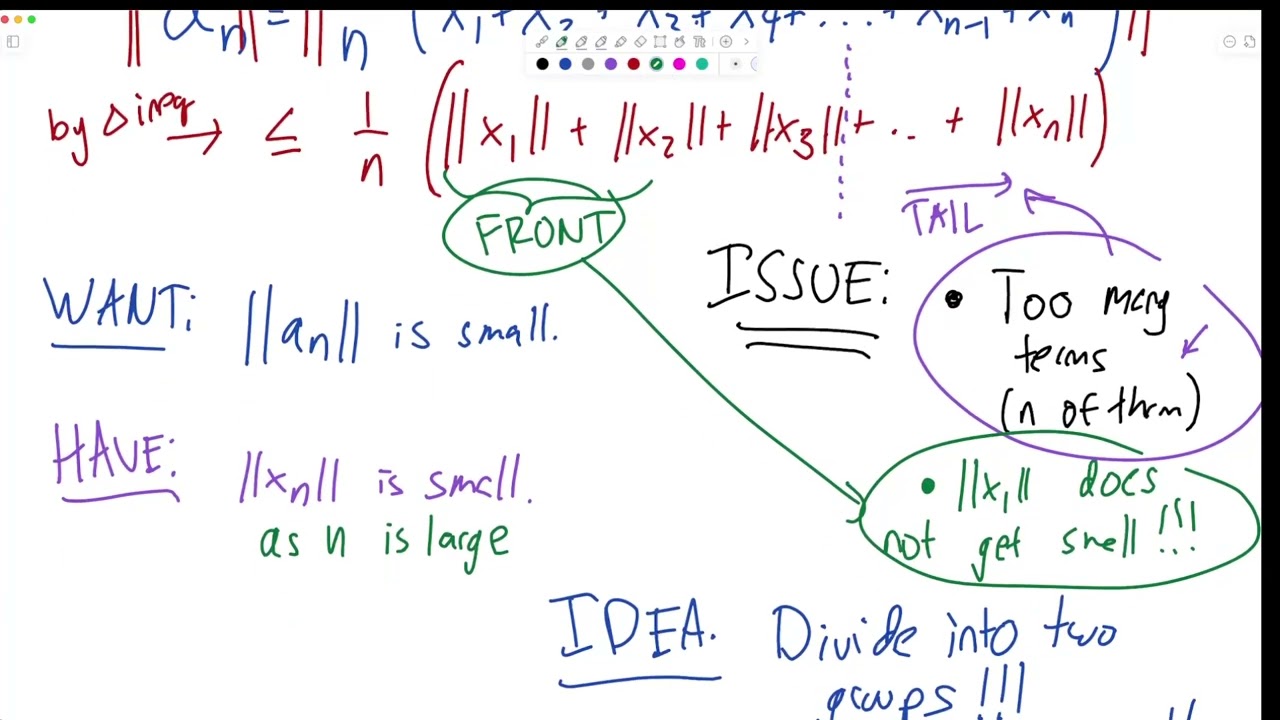 ||a_n|| = || 1/n (x_1 + x_2 + x_2 + x_4 + ... + x_{n-1} + x_n) ||
by Δ ineq → ≤ 1/n (||x_1|| + ||x_2|| + ||x_3|| + .. + ||x_n||)
FRONT
TAIL
ISSUE:
• Too many
terms
(n of them)
WANT: ||a_n|| is small.
HAVE: ||x_n|| is small.
as n is large
• ||x_1|| does
not get small !!!
IDEA. Divide into two
groups !!!